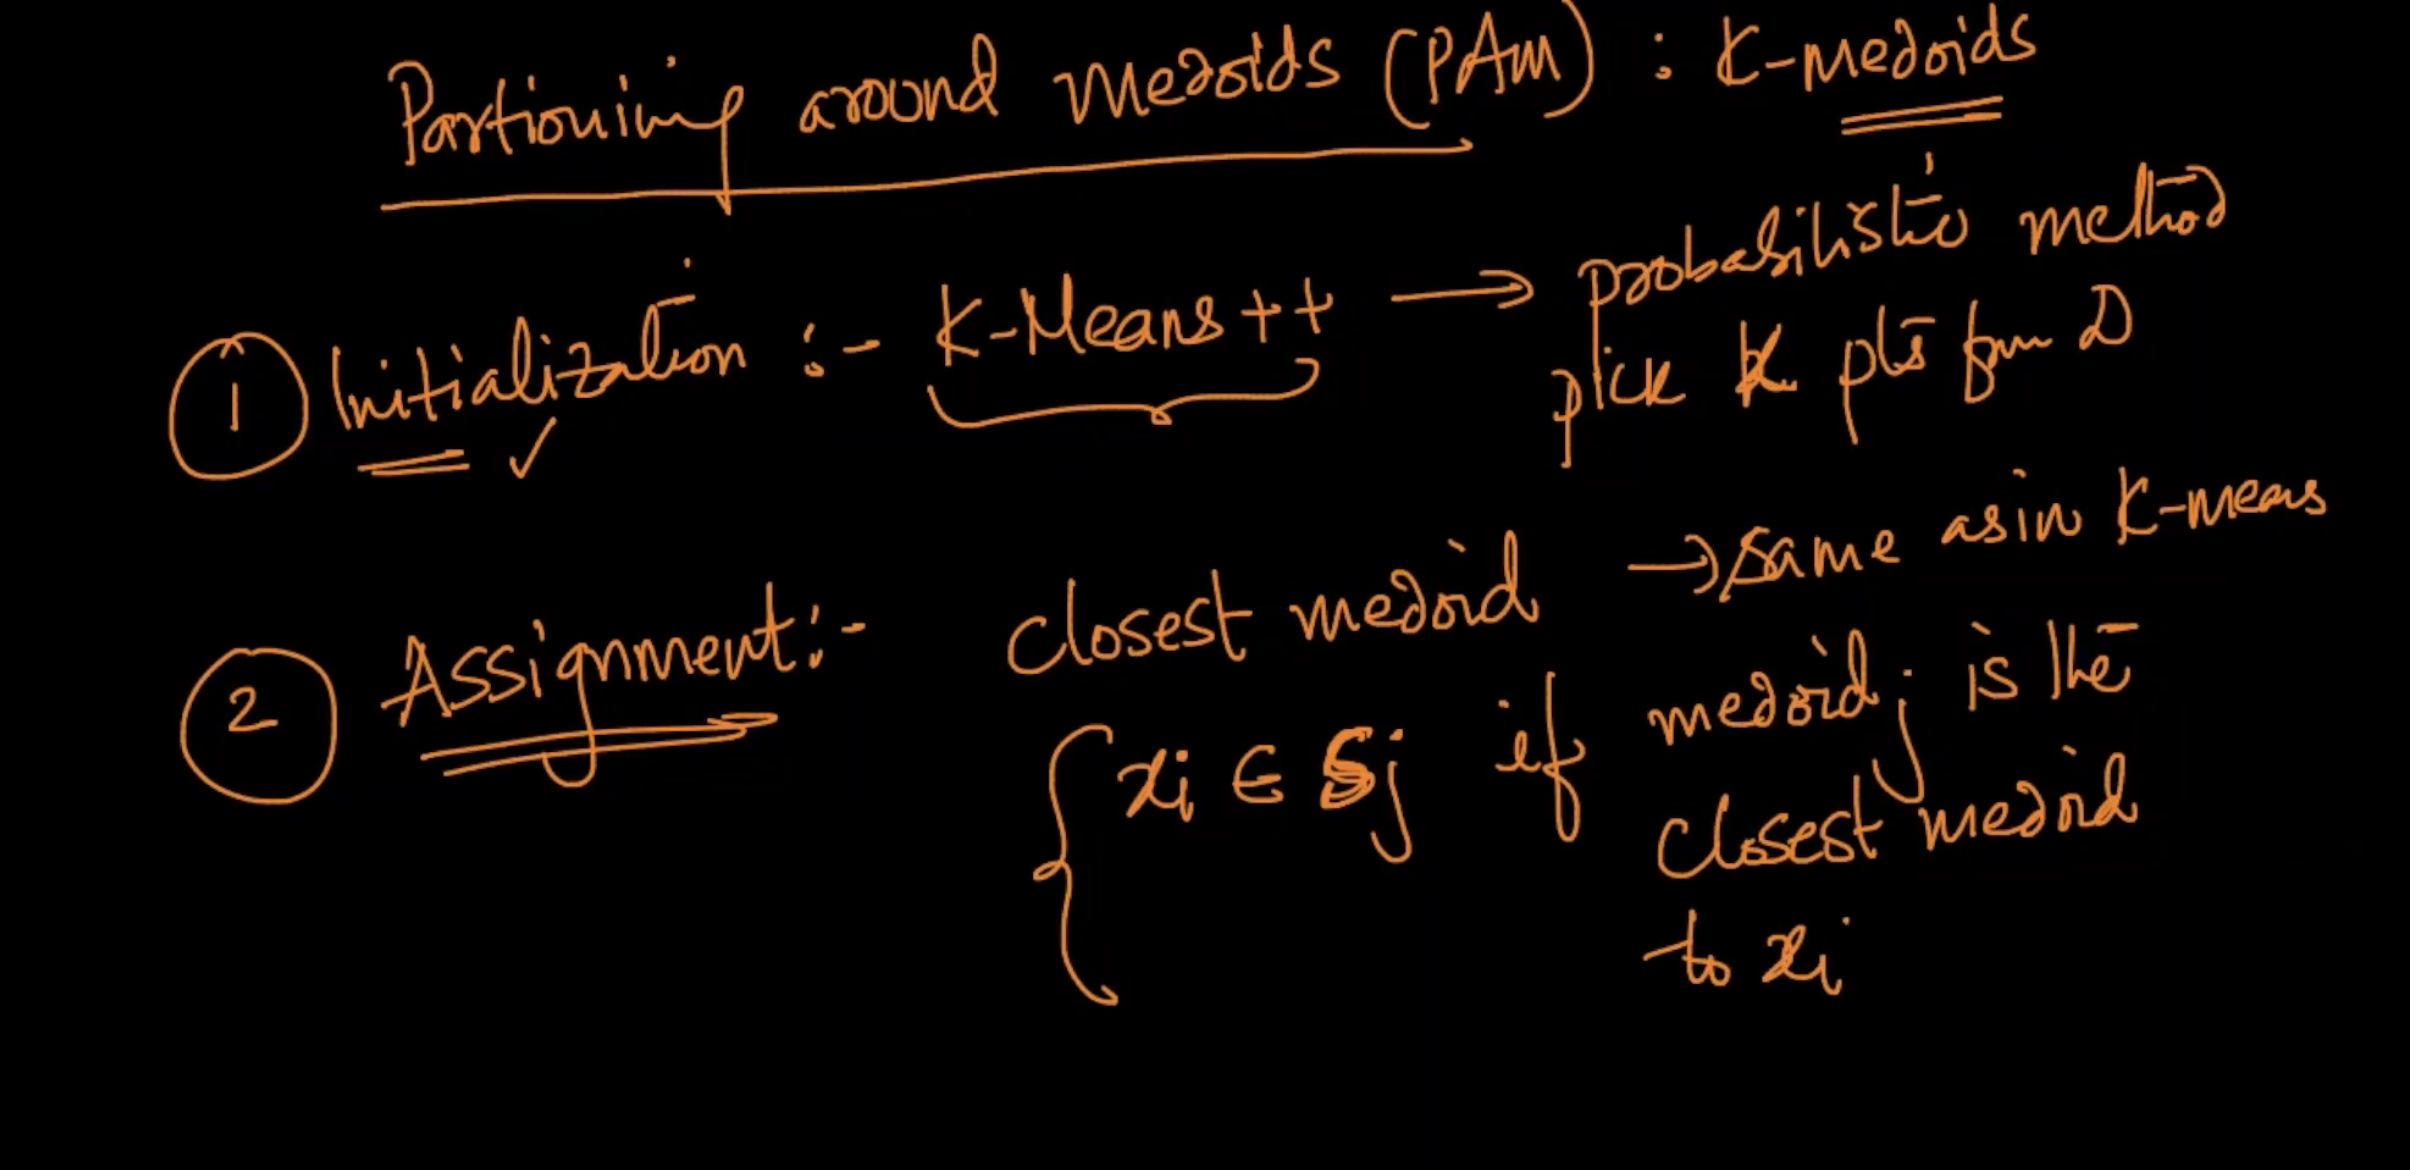 Partioning around Medoids (PAM) : K-Medoids
① Initialization :- K-Means++ → probabilistic method
pick k pts from D
② Assignment :- closest medoid → same as in K-means
xi ∈ Sj if medoidj is the
closest medoid
to xi